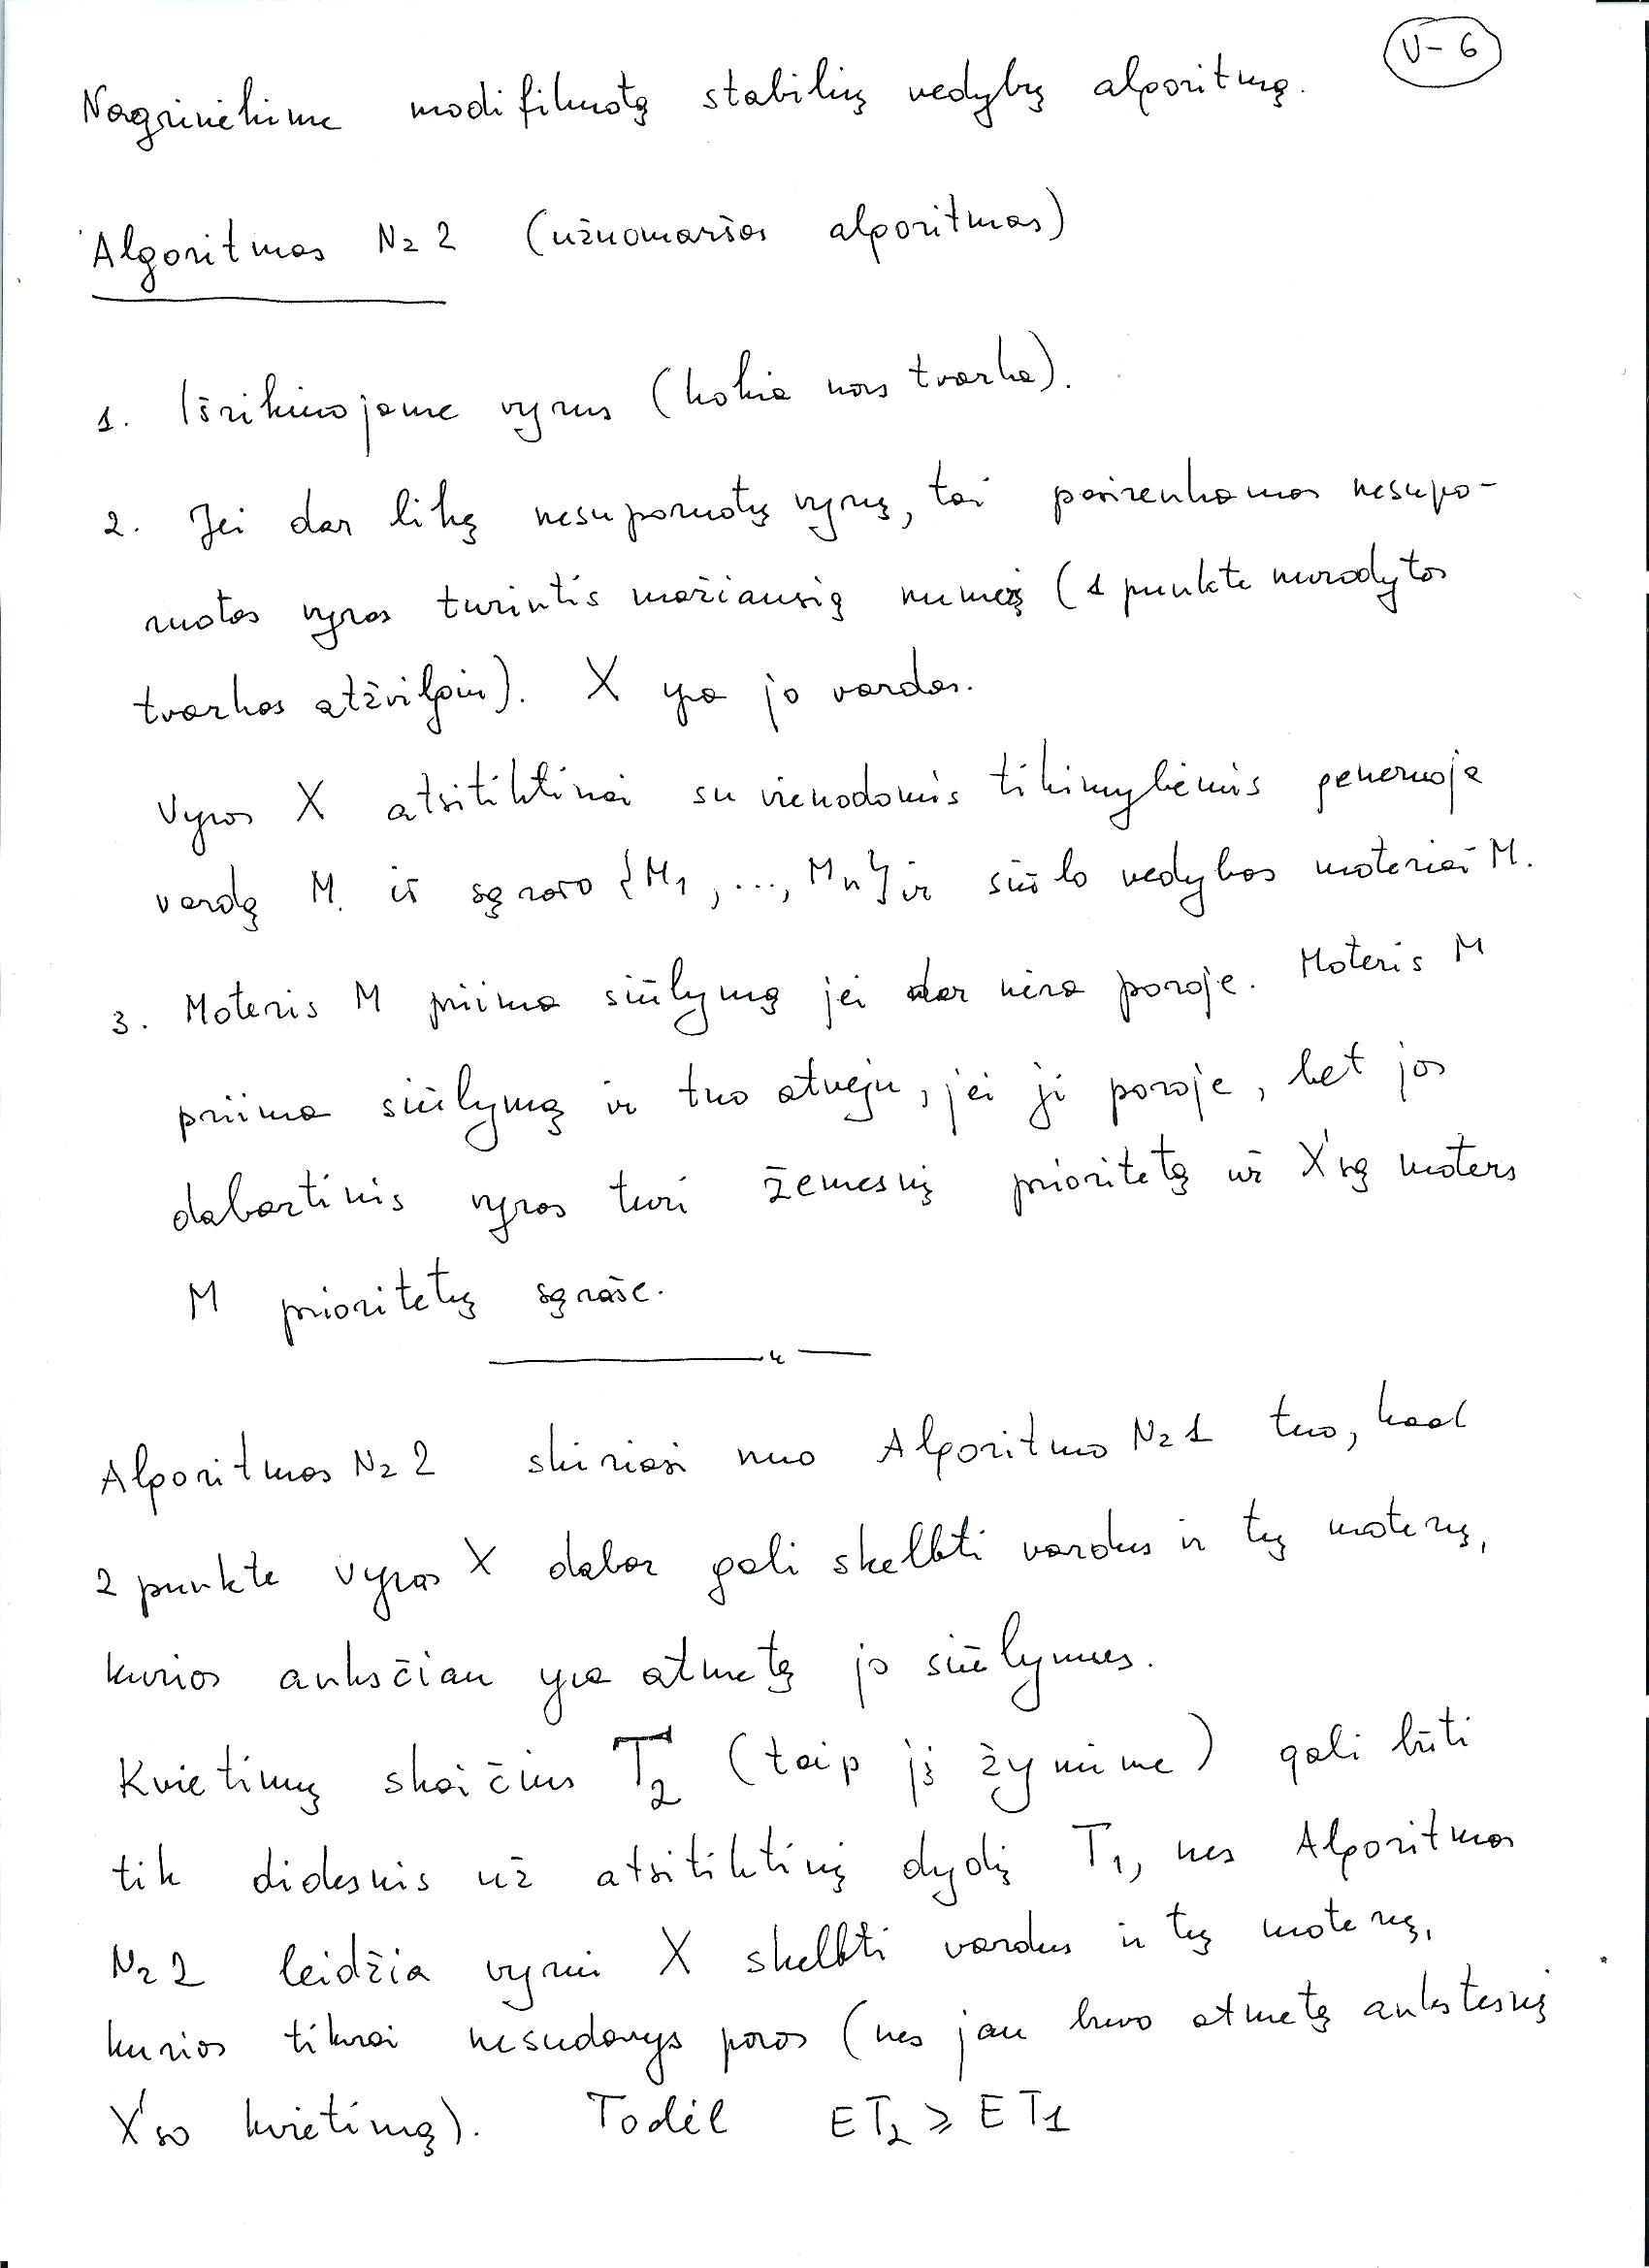 V-6
Nagrinėkime modifikuotą stabilių vedybų algoritmą.
Algoritmas N2 2 (užuomaršos algoritmas)
1. Išrikiuojame vyrus (kokia nors tvarka).
2. Jei dar likę nesuporuotų vyrų, tai pasirenkamas nesupo-
ruotas vyras turintis mažiausią numerį (1 punkte nurodytos
tvarkos atžvilgiu). X yra jo vardas.
Vyras X atsitiktinai su vienodomis tikimybėmis generuoja
vardą M. iš sąrašo {M1, ..., Mn} ir siūlo vedybas moteriai M.
3. Moteris M priima siūlymą jei dar nėra poroje. Moteris M
priima siūlymą ir tuo atveju, jei ji poroje, bet jos
dabartinis vyras turi žemesnį prioritetą už X'są moters
M prioritetų sąraše.
Algoritmas N2 2 skiriasi nuo Algoritmo N2 1 tuo, kad
2 punkte vyras X dabar gali skelbti vardus ir tų moterų,
kurios anksčiau yra atmetę jo siūlymus.
Kvietimų skaičius T2 (taip jį žymime) gali būti
tik didesnis už atsitiktinį dydį T1, nes Algoritmas
N2 2 leidžia vyrui X skelbti vardus ir tų moterų,
kurios tikrai nesudarys poros (nes jau buvo atmetę ankstesnį
X'so kvietimą). Todėl ET2 ⩾ ET1